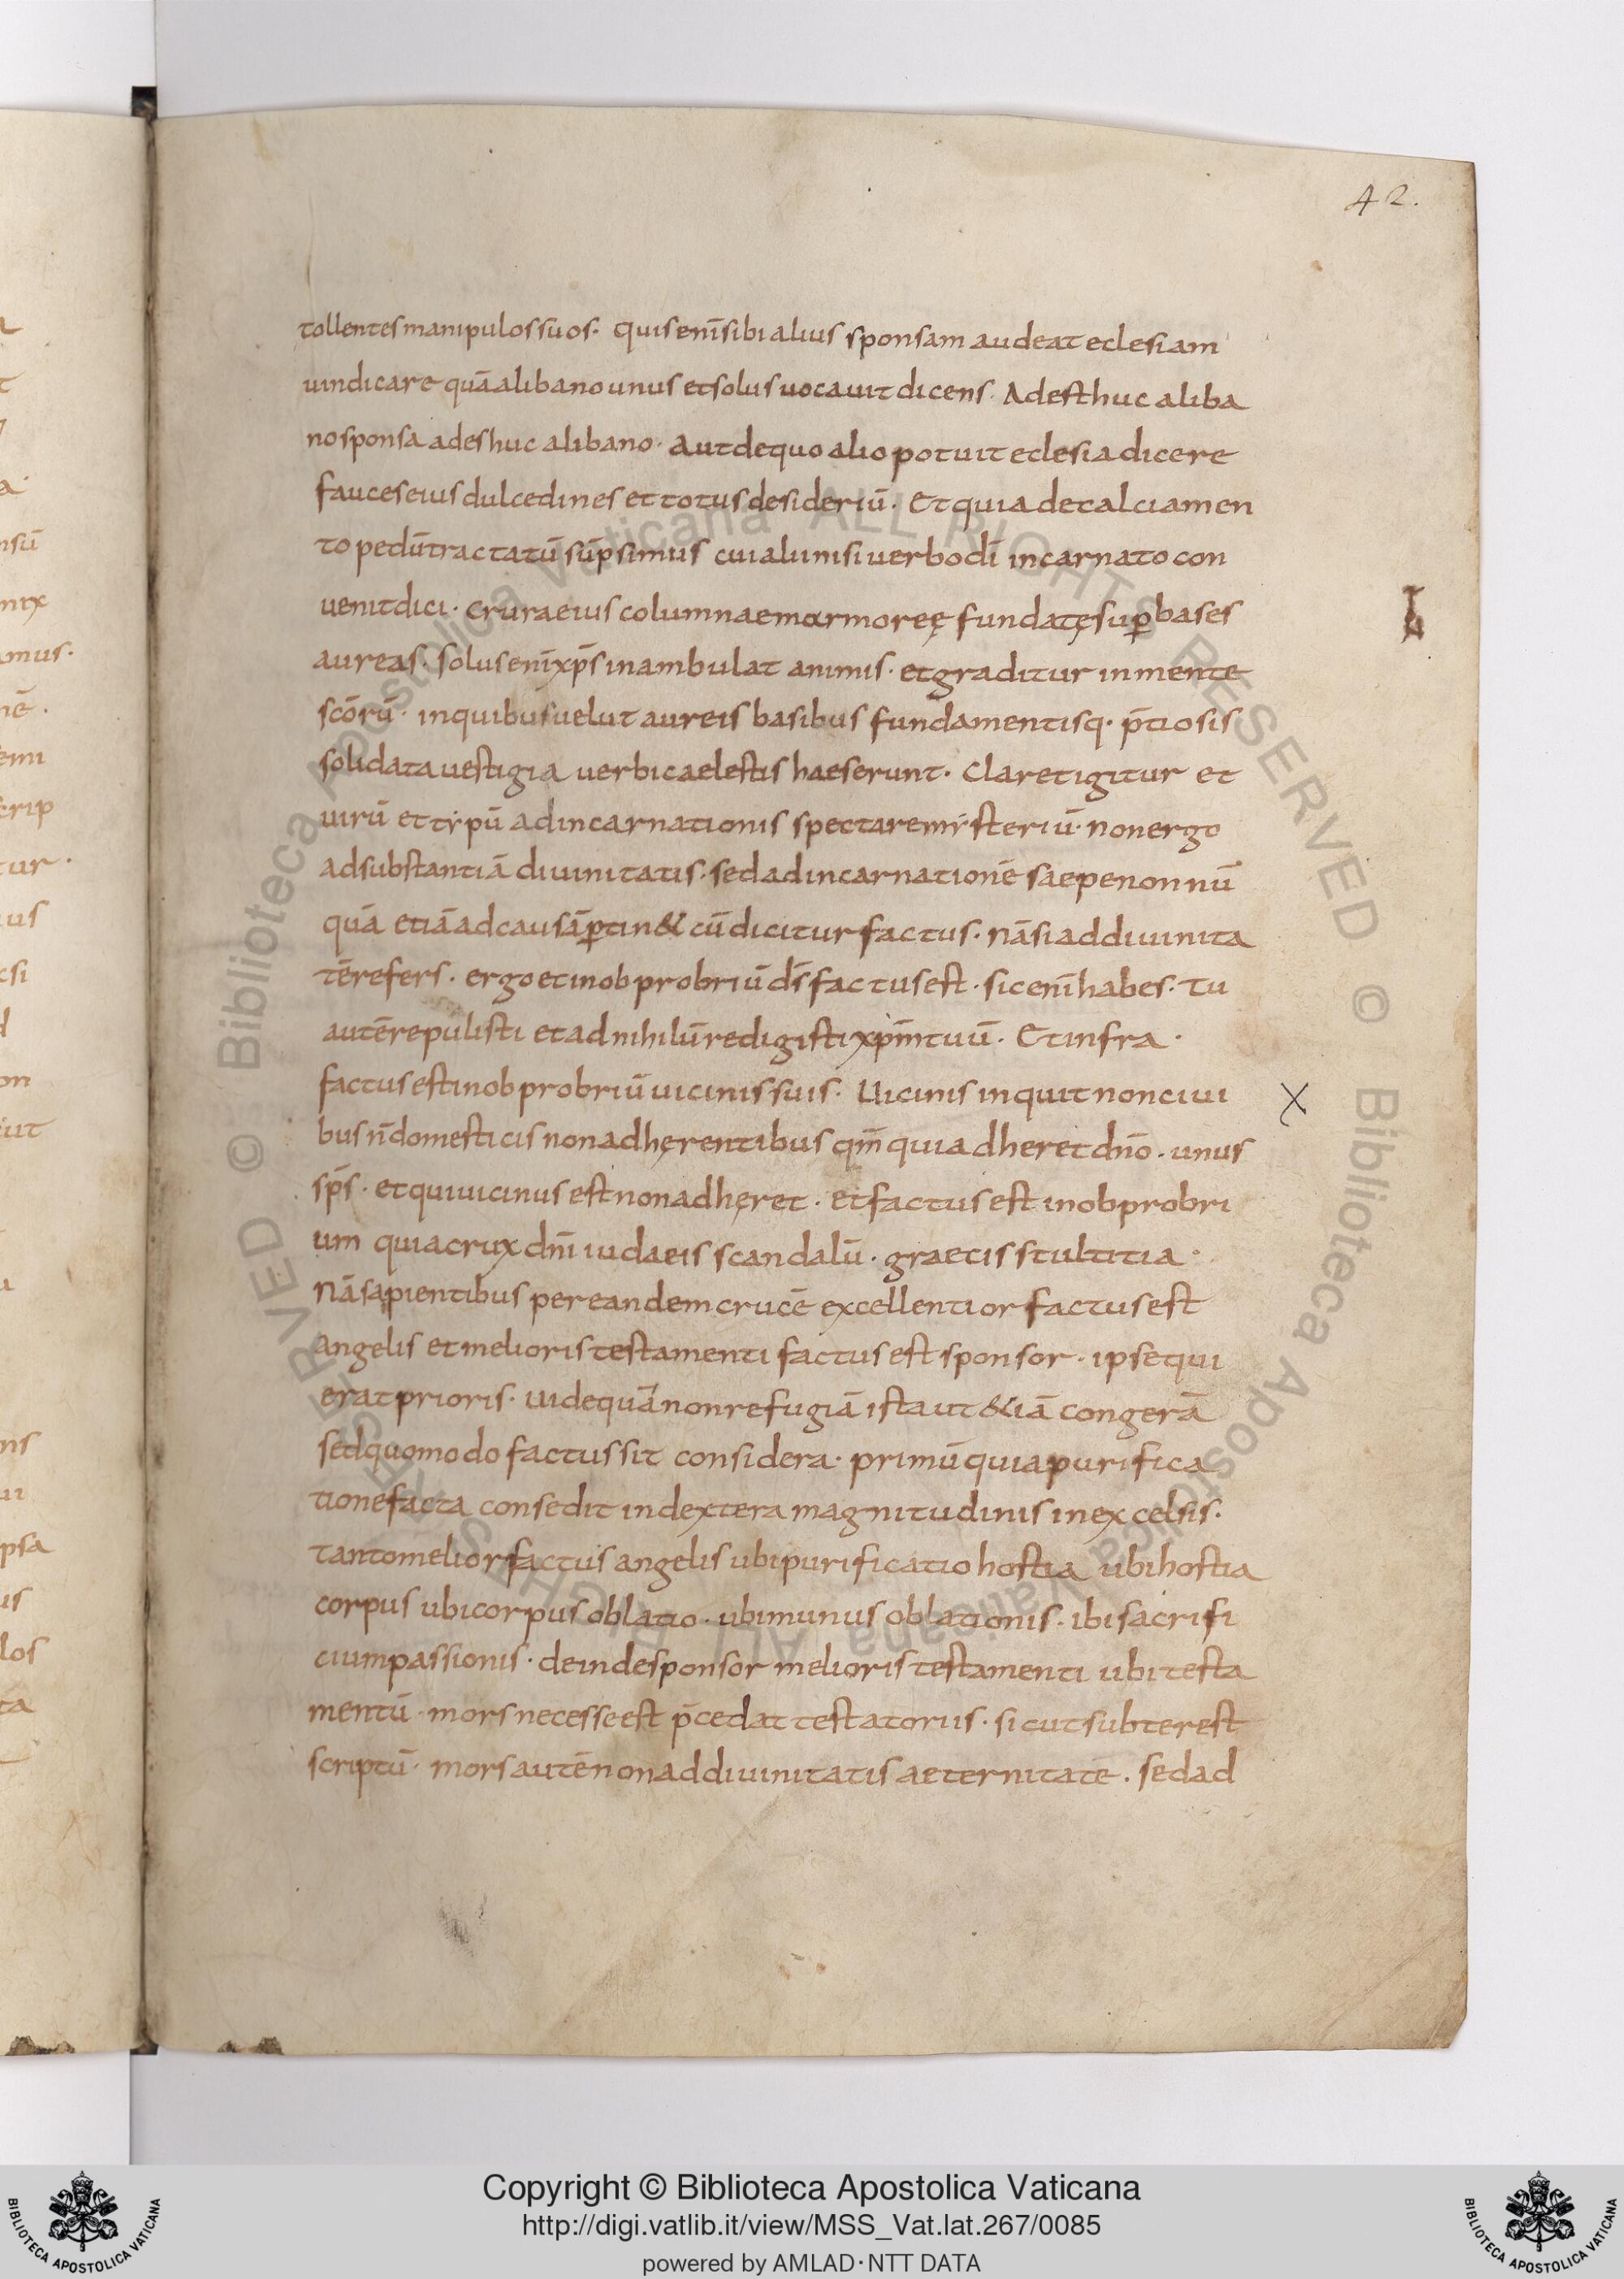 42.
tollentes manipulos suos. quis enī sibi alius sponsam audeat eclesiam
uindicare quā a libano unus et solus uocauit dicens. Adest huc a liba
no sponsa ades huc a libano. aut de quo alio potuit eclesia dicere
fauces eius dulcedines et totus desideriū. Et quia de calciamen
to pedū tractatū sūpsimus cui alii nisi uerbo dī incarnato con
uenit dici. crura eius columnae marmoreę fundatę sup̄ bases
aureas. solus enī xp̄s inambulat animis. et graditur in mente
scōrū. in quibus uelut aureis basibus fundamentisq. p̄tiosis
solidata uestigia uerbi caelestis haeserunt. Claret igitur et
uirū et typū ad incarnationis spectare mysteriū. non ergo
ad substantiā diuinitatis. sed ad incarnationē saepe non nū
quā etiā ad causā p̄tin& cū dicitur factus. nā si ad diuinita
tē refers. ergo et in obprobriū ds̄ factus est. sic enī habes. tu
autē repulisti et ad nihilū redigisti xpm̄ tuū. Et infra.
factus est in obprobriū uicinis suis. Uicinis inquit non ciui
bus n̄ domesticis non adhęrentibus qm̄ qui adheret dn̄o. unus
sp̄s. et qui uicinus est non adhęret. et factus est in obprobri
um quia crux dn̄i iudaeis scandalū. graecis stultitia.
Nā sapientibus per eandem crucē excellentior factus est
angelis et melioris testamenti factus est sponsor. ipse qui
erat prioris. uide quā non refugiā ista ut &iā congerā
sed quomodo factus sit considera. primū quia purifica
tione facta consedit in dextera magnitudinis in excelsis.
tanto melior factus angelis ubi purificatio hostia ubi hostia
corpus ubi corpus oblatio. ubi munus oblationis. ibi sacrifi
cium passionis. deinde sponsor melioris testamenti ubi testa
mentū. mors necesse est p̄cedat testatoris. sicut subter est
scriptū. mors autē non ad diuinitatis aeternitatē. sed ad
Copyright © Biblioteca Apostolica Vaticana
http://digi.vatlib.it/view/MSS_Vat.lat.267/0085
powered by AMLAD·NTT DATA
BIBLIOTECA APOSTOLICA VATICANA
BIBLIOTECA APOSTOLICA VATICANA